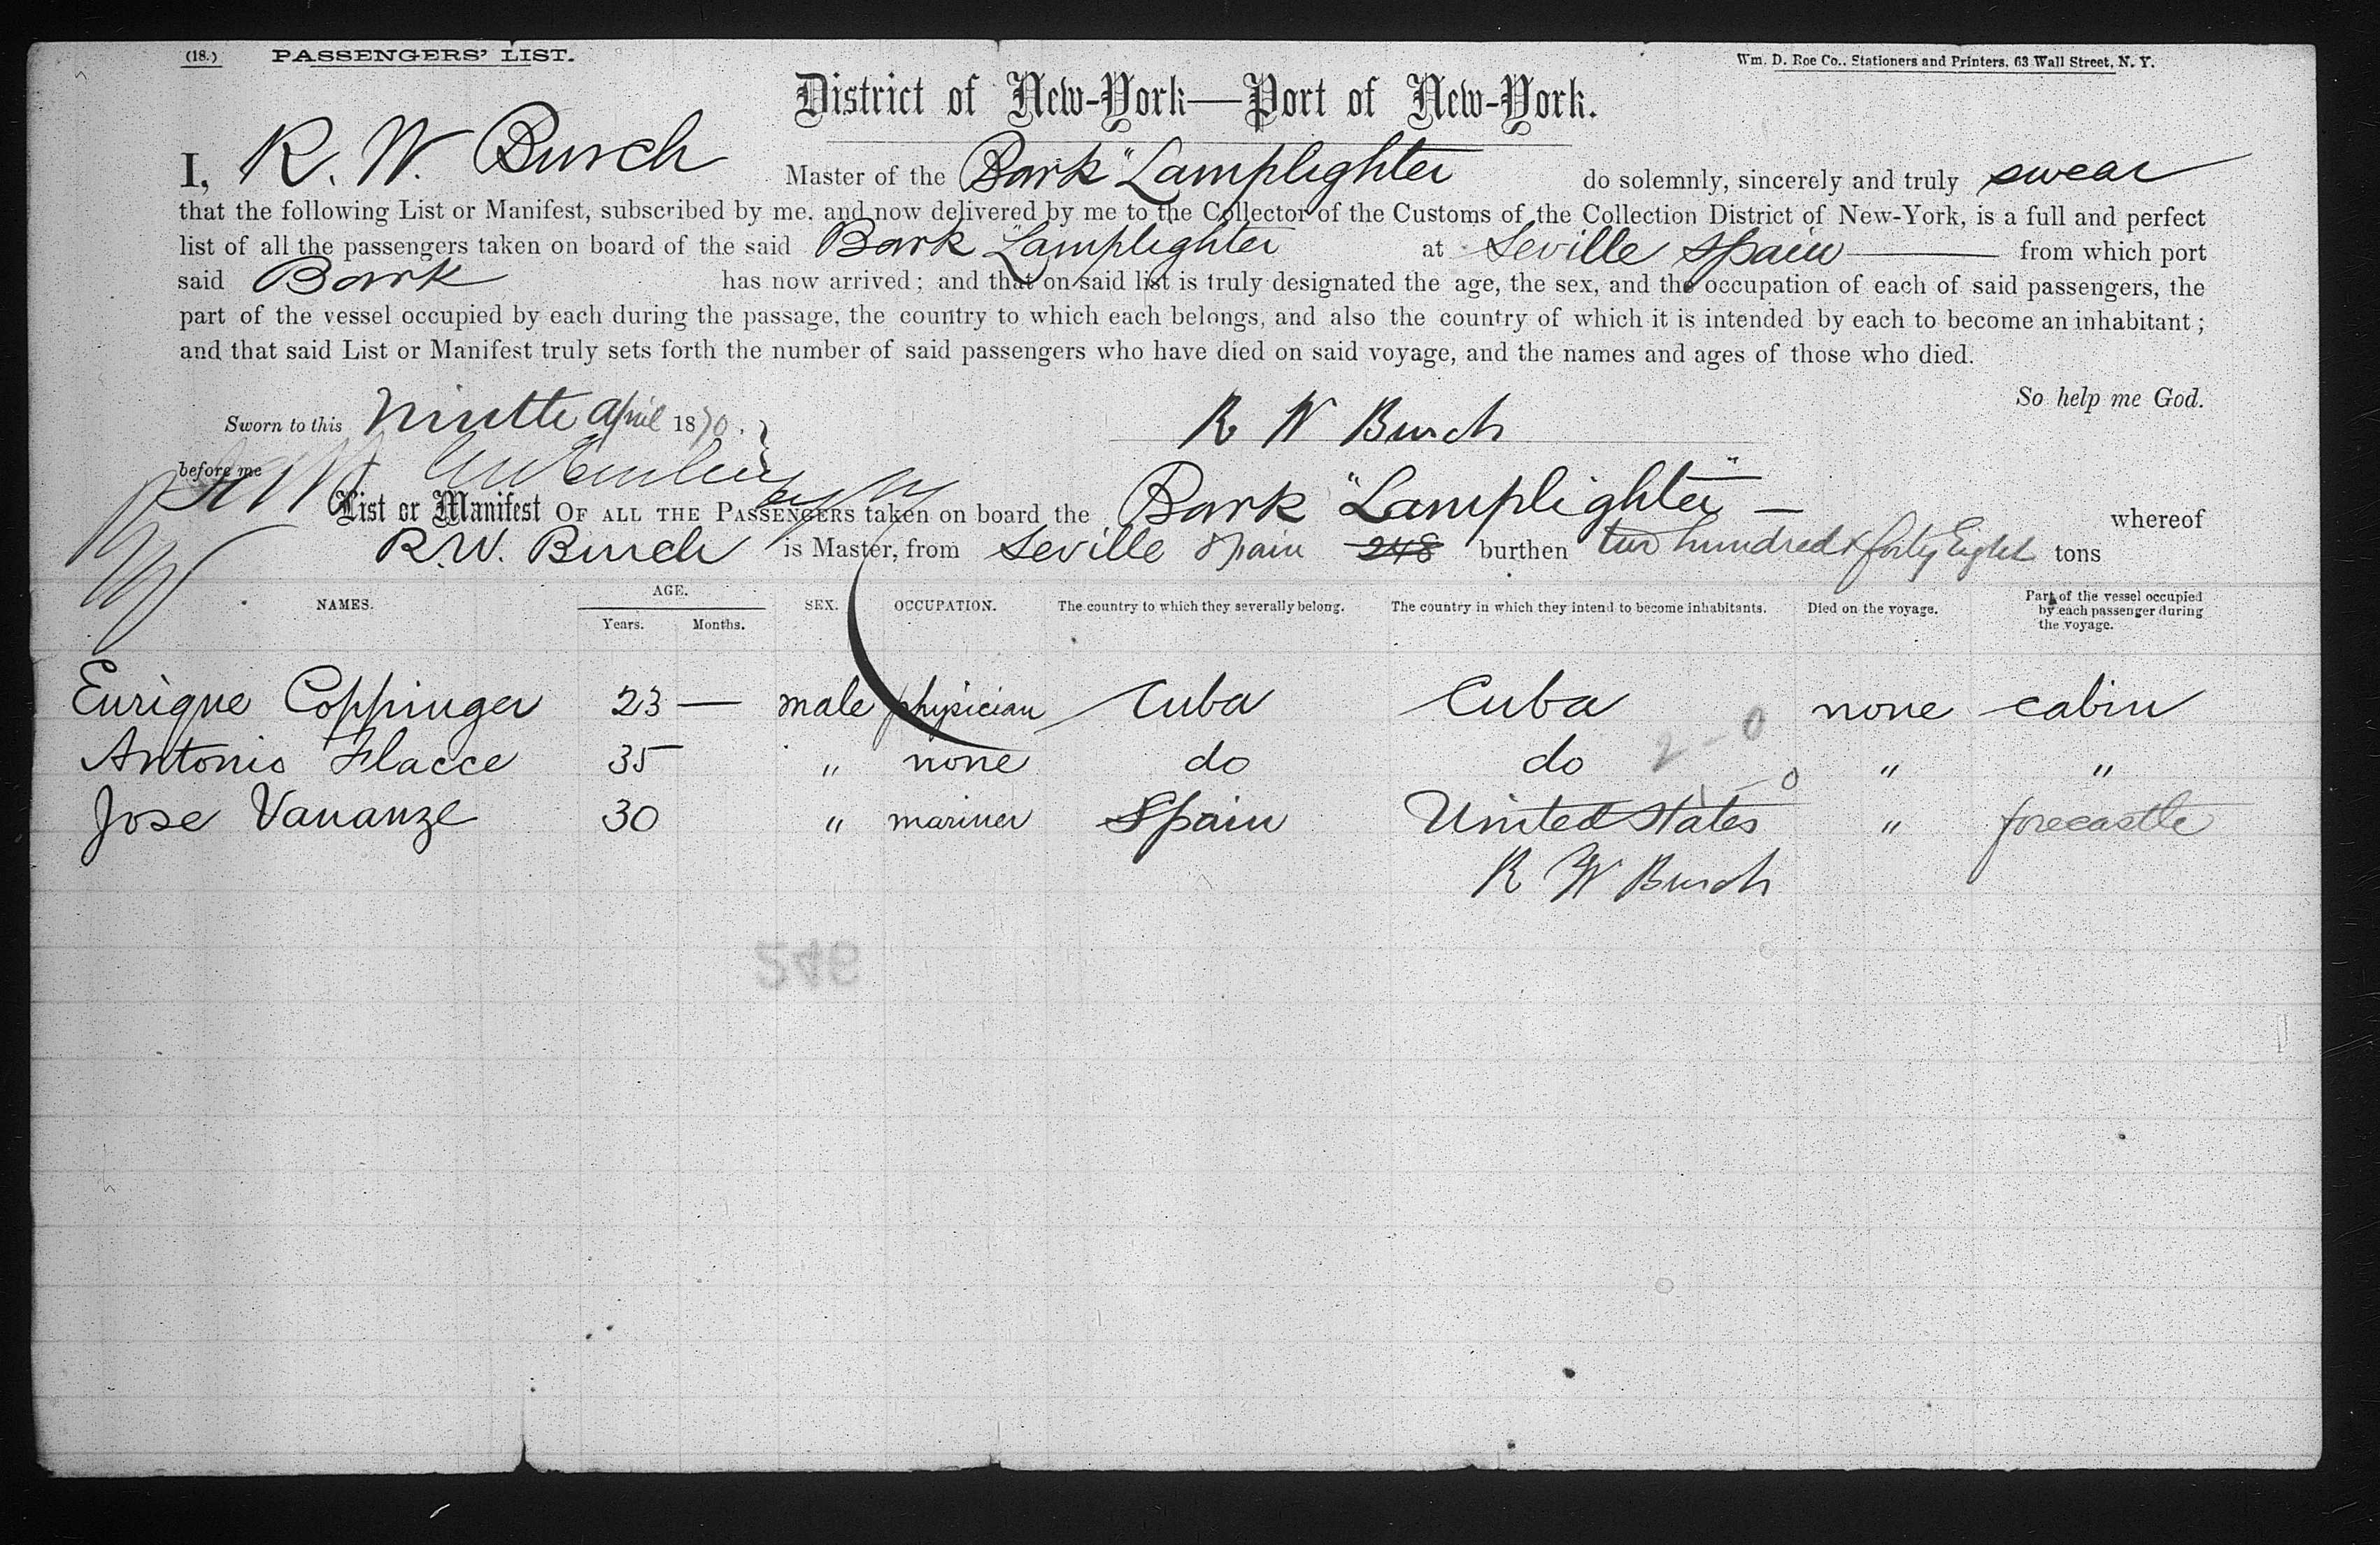 (18.) PASSENGERS' LIST. Wm. D. Roe Co., Stationers and Printers, 63 Wall Street, N. Y.
District of New-York—Port of New-York.
I, R. W. Burch Master of the Bark "Lamplighter do solemnly, sincerely and truly swear
that the following List or Manifest, subscribed by me, and now delivered by me to the Collector of the Customs of the Collection District of New-York, is a full and perfect
list of all the passengers taken on board of the said Bark "Lamplighter at Seville Spain from which port
said Bark has now arrived; and that on said list is truly designated the age, the sex, and the occupation of each of said passengers, the
part of the vessel occupied by each during the passage, the country to which each belongs, and also the country of which it is intended by each to become an inhabitant;
and that said List or Manifest truly sets forth the number of said passengers who have died on said voyage, and the names and ages of those who died.
So help me God.
Sworn to this Ninth April 1870.
R W Burch
before me
List or Manifest OF ALL THE PASSENGERS taken on board the Bark "Lamplighter" — whereof
R.W. Burch is Master, from Seville Spain 248 burthen two hundred & forty Eight tons
NAMES. AGE. Years. Months. SEX. OCCUPATION. The country to which they severally belong. The country in which they intend to become inhabitants. Died on the voyage. Part of the vessel occupied by each passenger during the voyage.
Enrique Coppinger 23 — male physician Cuba Cuba none cabin
Antonio Flacce 35 " none do do 2-0 " "
Jose Vananze 30 " mariner Spain United States 1-0 " forecastle
R W Burch